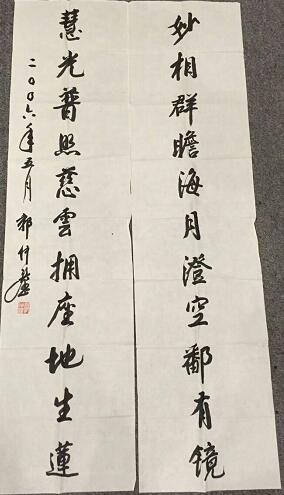 妙相群瞻海月澄空鄱有镜
慧光普照慈雲拥座地生蓮
二〇〇六年五月 郭什